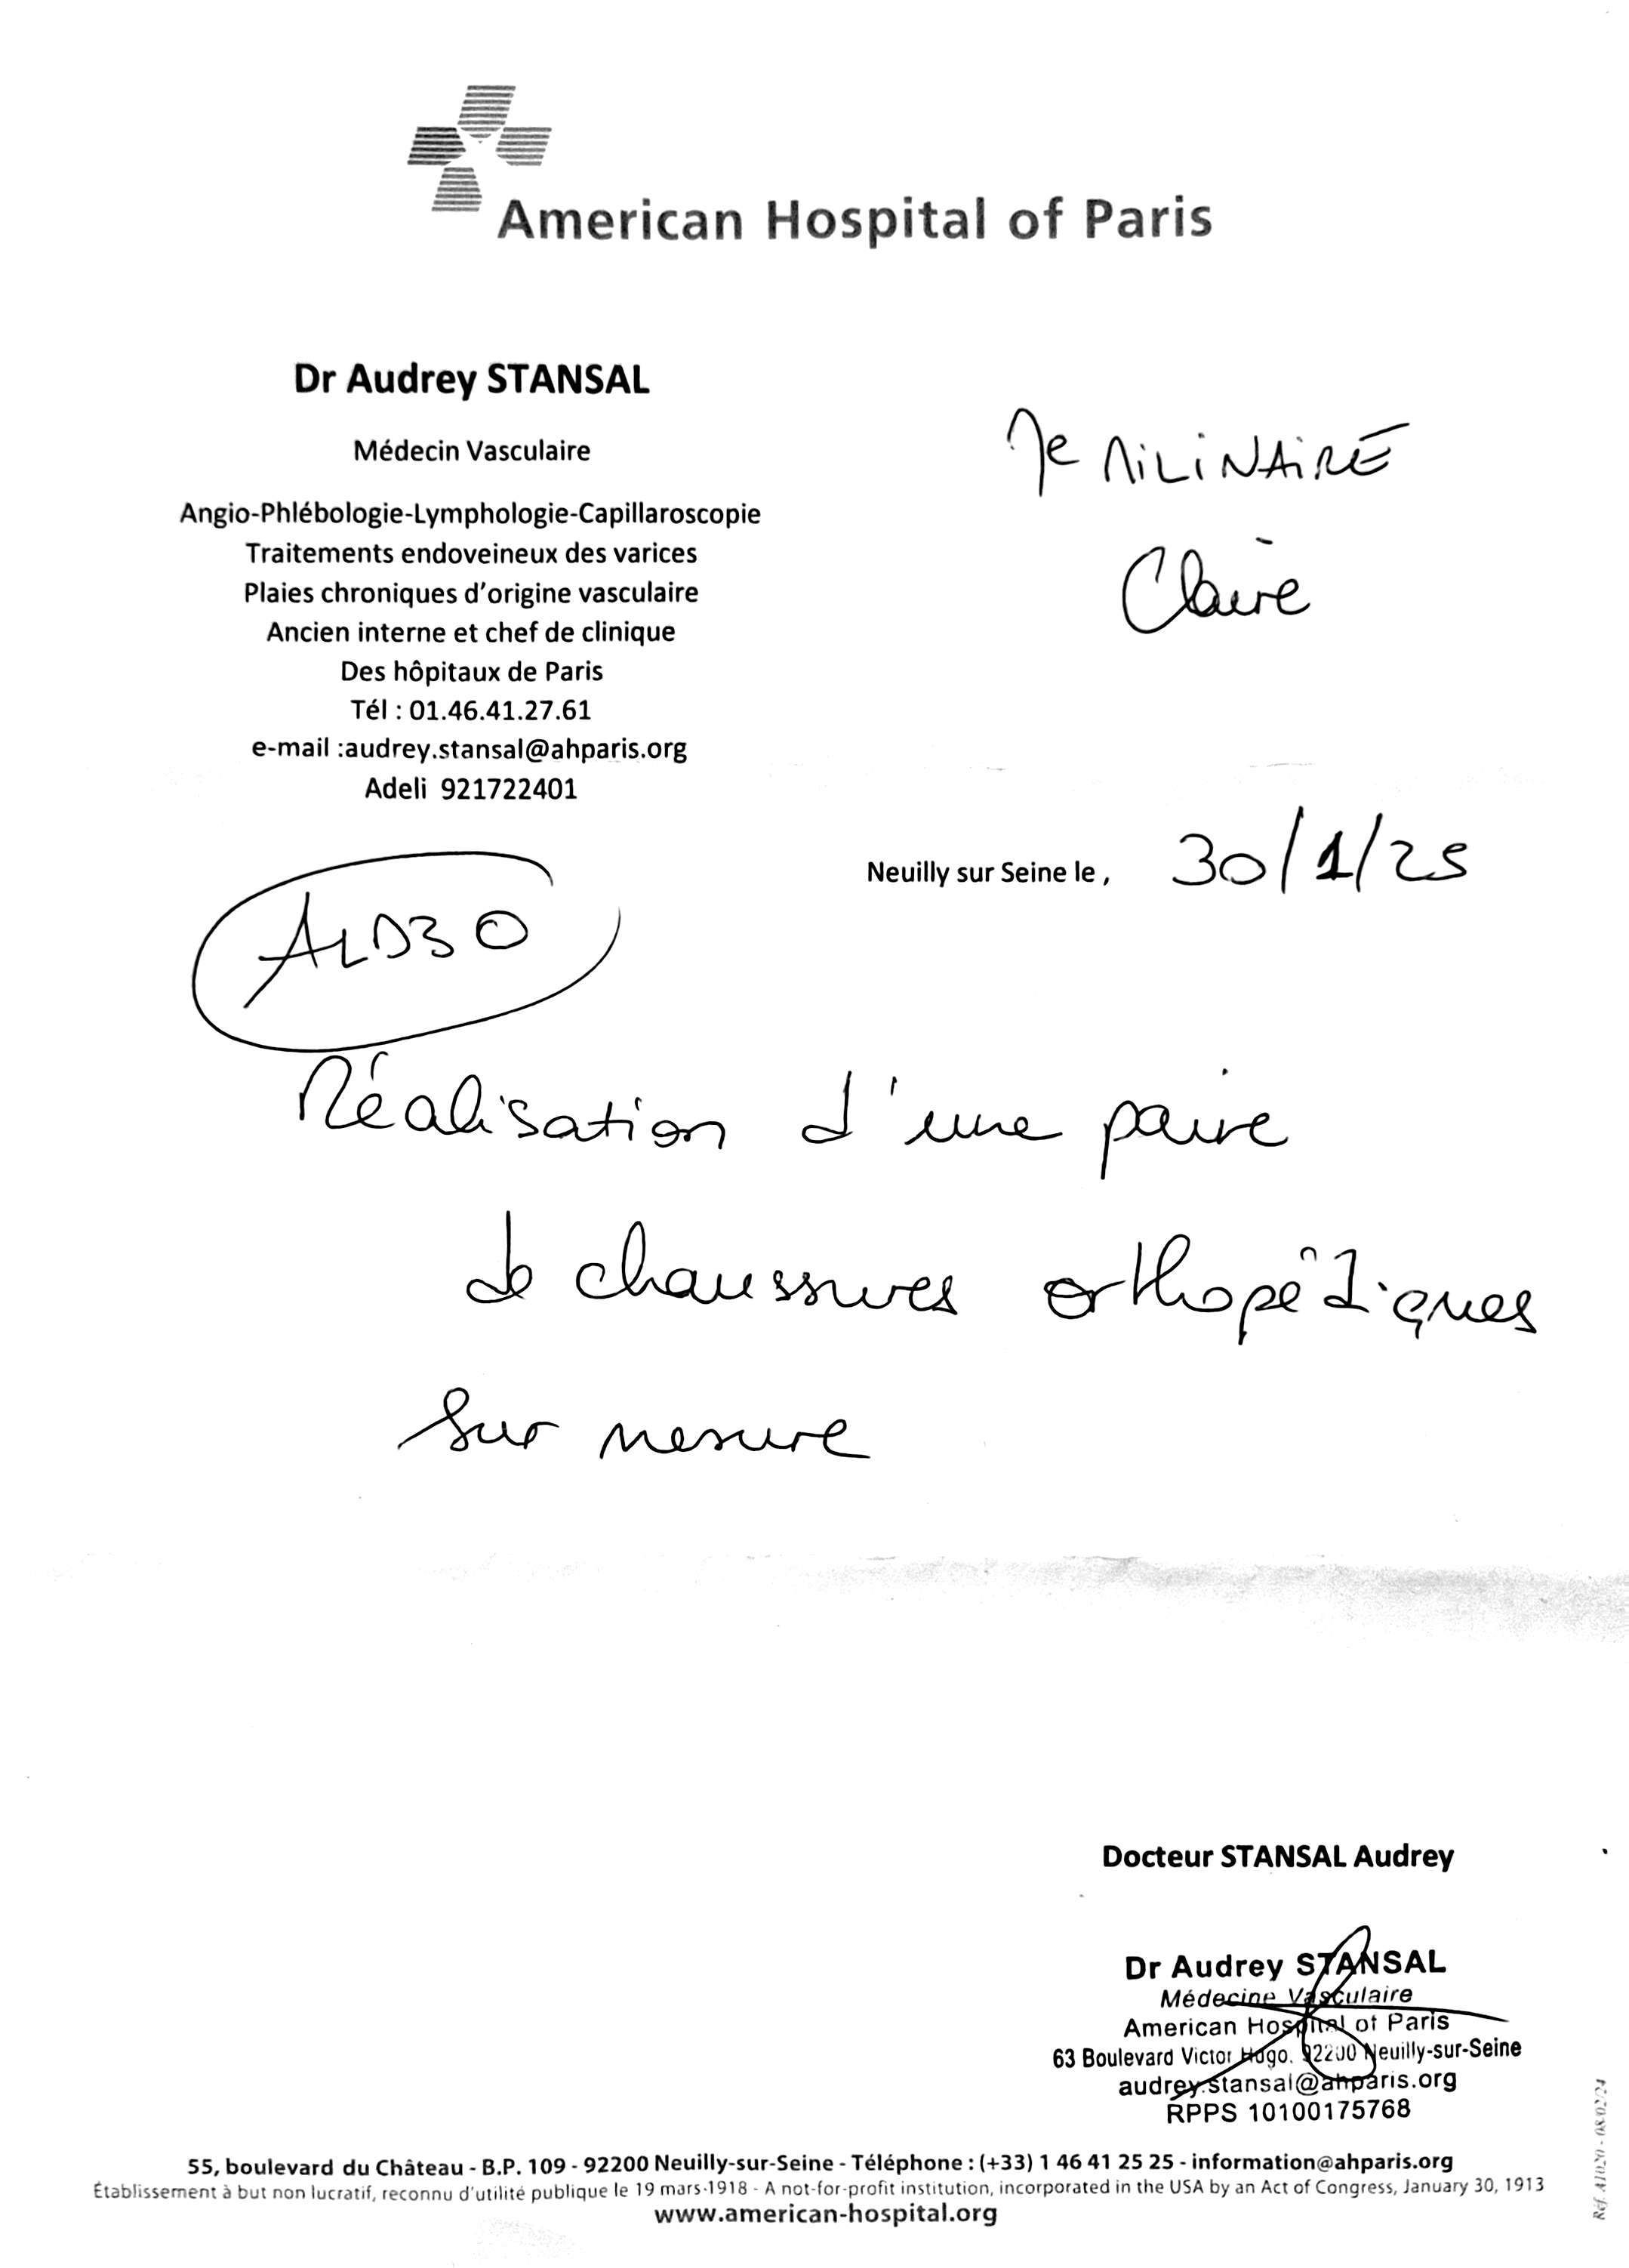 American Hospital of Paris
Dr Audrey STANSAL
Médecin Vasculaire
Angio-Phlébologie-Lymphologie-Capillaroscopie
Traitements endoveineux des varices
Plaies chroniques d'origine vasculaire
Ancien interne et chef de clinique
Des hôpitaux de Paris
Tél : 01.46.41.27.61
e-mail :audrey.stansal@ahparis.org
Adeli 921722401
Me MILINAIRE
Claire
Neuilly sur Seine le, 30/1/25
ALD30
Réalisation d'une paire
de chaussures orthopédiques
sur mesure
Docteur STANSAL Audrey
Dr Audrey STANSAL
Médecine Vasculaire
American Hospital of Paris
63 Boulevard Victor Hugo. 92200 Neuilly-sur-Seine
audrey.stansal@ahparis.org
RPPS 10100175768
55, boulevard du Château - B.P. 109 - 92200 Neuilly-sur-Seine - Téléphone : (+33) 1 46 41 25 25 - information@ahparis.org
Établissement à but non lucratif, reconnu d'utilité publique le 19 mars-1918 - A not-for-profit institution, incorporated in the USA by an Act of Congress, January 30, 1913
www.american-hospital.org
Réf. A1020 - 08/02/24